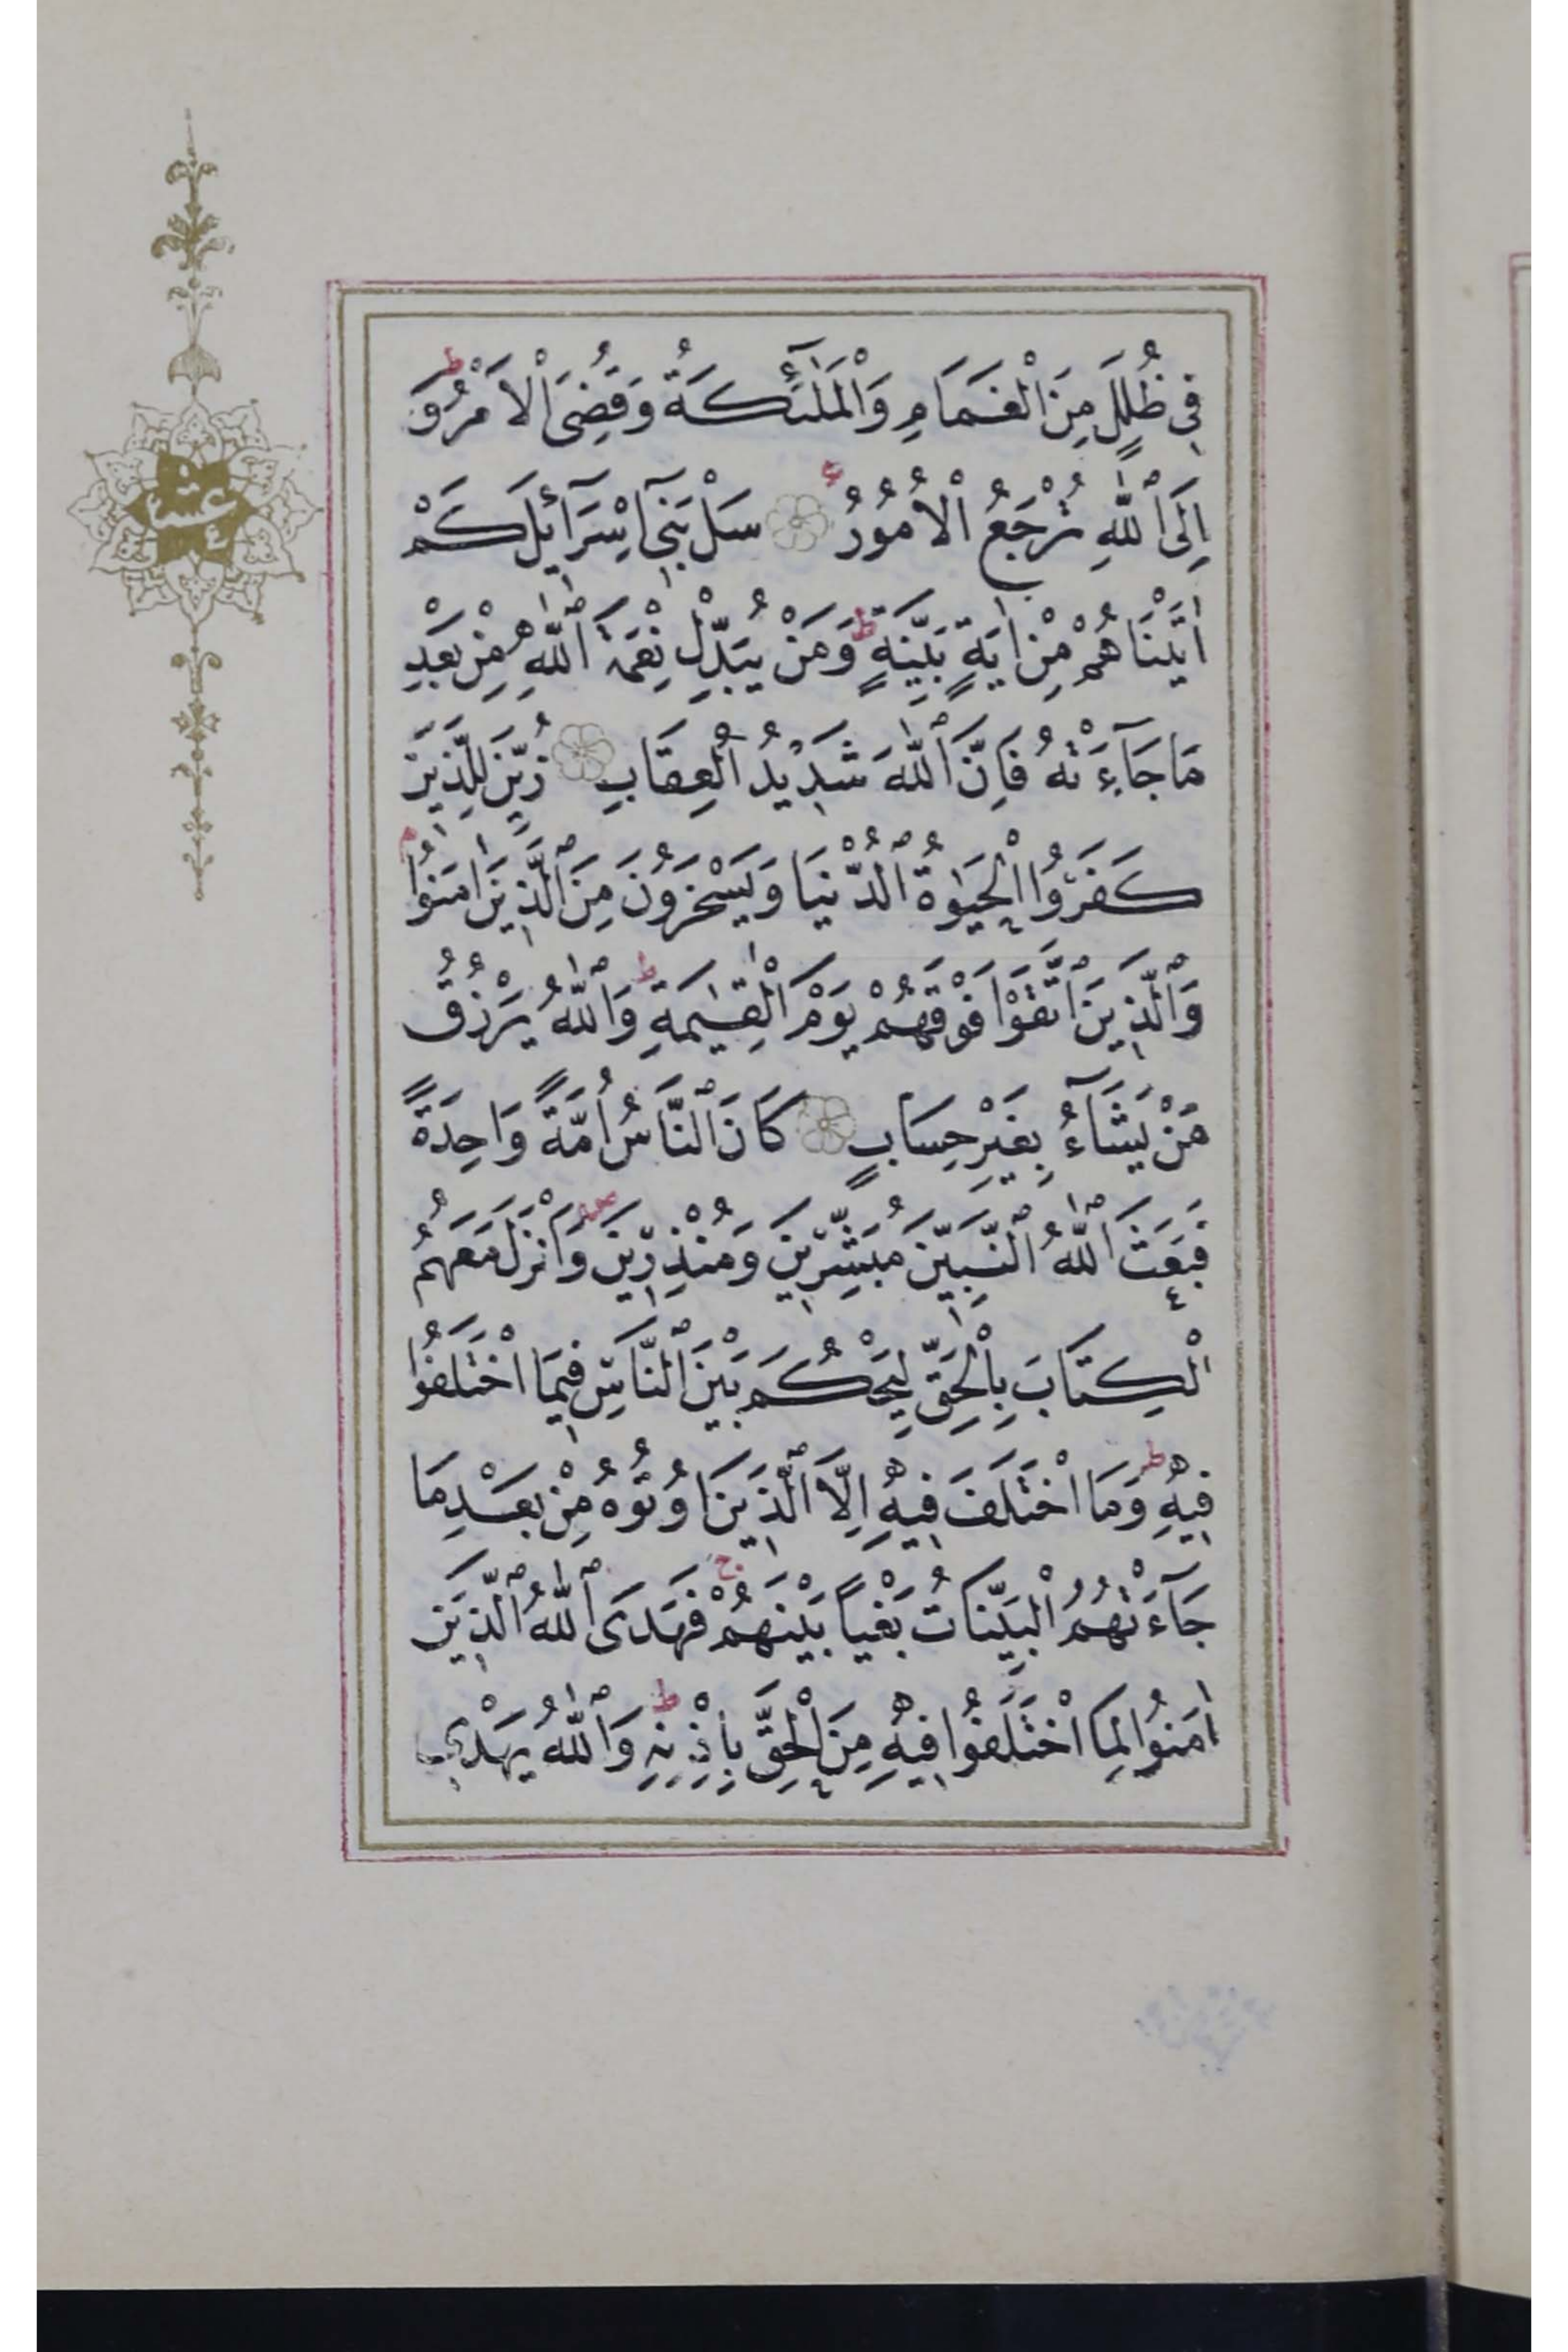 فِي ظُلَلٍ مِنَ الْغَمَامِ وَالْمَلٰٓئِكَةُ وَقُضِيَ الْاَمْرُ ط وَ
اِلَى اللّٰهِ تُرْجَعُ الْاُمُورُ ع سَلْ بَنِٓي اِسْرَٓائِلَ كَمْ
اٰتَيْنَاهُمْ مِنْ اٰيَةٍ بَيِّنَةٍ ط وَمَنْ يُبَدِّلْ نِعْمَةَ اللّٰهِ مِنْ بَعْدِ
مَا جَٓاءَتْهُ فَاِنَّ اللّٰهَ شَدِيدُ الْعِقَابِ زُيِّنَ لِلَّذِينَ
كَفَرُوا الْحَيٰوةُ الدُّنْيَا وَيَسْخَرُونَ مِنَ الَّذِينَ اٰمَنُوا م
وَالَّذِينَ اتَّقَوْا فَوْقَهُمْ يَوْمَ الْقِيٰمَةِ ط وَاللّٰهُ يَرْزُقُ
مَنْ يَشَٓاءُ بِغَيْرِ حِسَابٍ كَانَ النَّاسُ اُمَّةً وَاحِدَةً
فَبَعَثَ اللّٰهُ النَّبِيِّنَ مُبَشِّرِينَ وَمُنْذِرِينَ وَاَنْزَلَ مَعَهُمُ
الْكِتَابَ بِالْحَقِّ لِيَحْكُمَ بَيْنَ النَّاسِ فِيمَا اخْتَلَفُوا
فِيهِ ط وَمَا اخْتَلَفَ فِيهِ اِلَّا الَّذِينَ اُوتُوهُ مِنْ بَعْدِ مَا
جَٓاءَتْهُمُ الْبَيِّنَاتُ بَغْيًا بَيْنَهُمْ ج فَهَدَى اللّٰهُ الَّذِينَ
اٰمَنُوا لِمَا اخْتَلَفُوا فِيهِ مِنَ الْحَقِّ بِاِذْنِهِ ط وَاللّٰهُ يَهْدِي
عشر